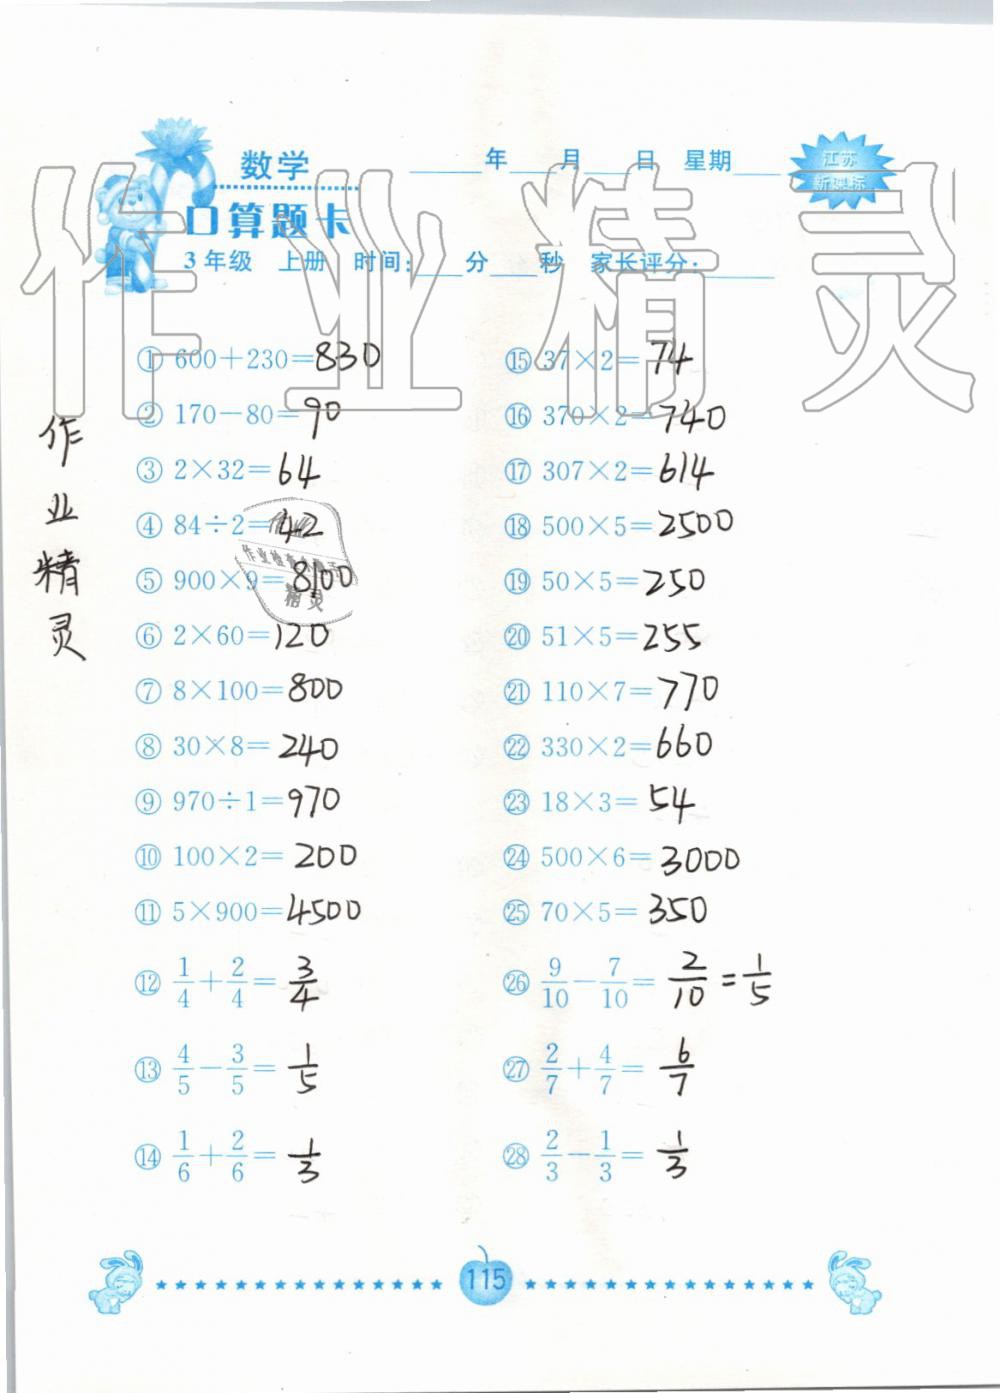 数学
____年____月____日 星期____
江苏
新课标
口算题卡
3年级 上册 时间:____分____秒 家长评分·____
作业精灵
① 600+230=830
② 170-80=90
③ 2×32=64
④ 84÷2=42
⑤ 900×9=8100
⑥ 2×60=120
⑦ 8×100=800
⑧ 30×8=240
⑨ 970÷1=970
⑩ 100×2=200
⑪ 5×900=4500
⑫ 1/4+2/4=3/4
⑬ 4/5-3/5=1/5
⑭ 1/6+2/6=1/3
⑮ 37×2=74
⑯ 370×2=740
⑰ 307×2=614
⑱ 500×5=2500
⑲ 50×5=250
⑳ 51×5=255
㉑ 110×7=770
㉒ 330×2=660
㉓ 18×3=54
㉔ 500×6=3000
㉕ 70×5=350
㉖ 9/10-7/10=2/10=1/5
㉗ 2/7+4/7=6/7
㉘ 2/3-1/3=1/3
作
业
精
灵
精灵
115